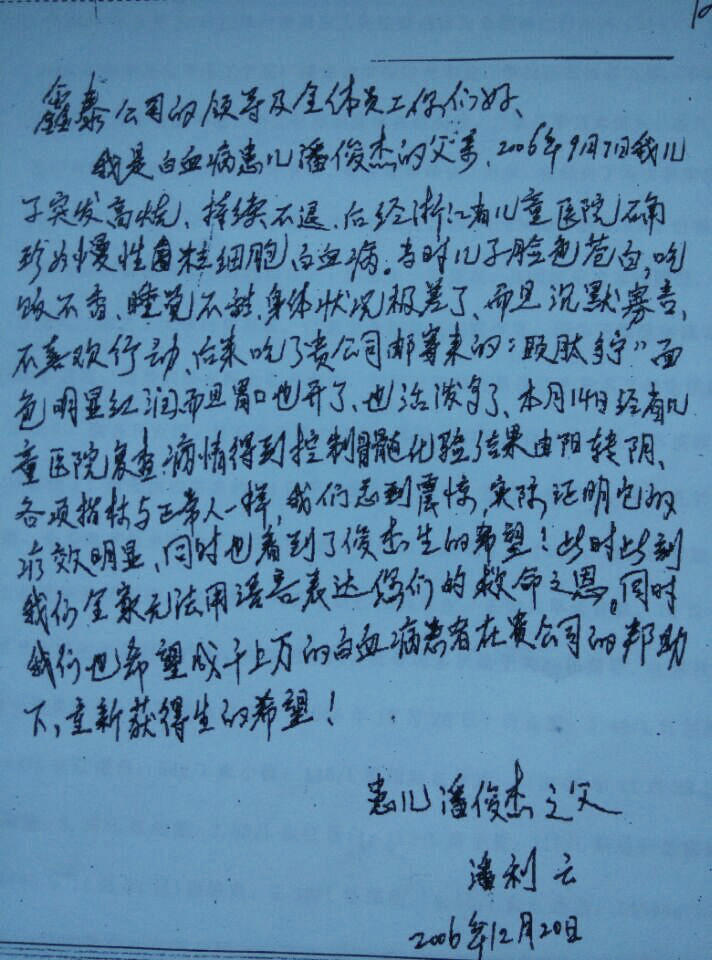 鑫泰公司的领导及全体员工你们好、
我是白血病患儿潘俊杰的父亲、2006年9月7日我儿
子突发高烧、持续不退、后经浙江省儿童医院确
珍为慢性菌粒细胞白血病。当时儿子脸色苍白,吃
饭不香、睡觉不甜、身体状况极差了、而且沉默寡言、
不喜欢行动、后来吃了贵公司邮寄来的"颐肽多宁"面
色明显红润而且胃口也开了、也活泼多了、本月14日经省儿
童医院复查病情得到控制骨髓化验结果由阳转阴、
各项指标与正常人一样,我们感到震惊,实际证明它的
疗效明显、同时也看到了俊杰生的希望!此时此刻
我们全家无法用语言表达您们的救命之恩。同时
我们也希望成千上万的白血病患者在贵公司的帮助
下,重新获得生的希望!
患儿潘俊杰之父
潘利云
2006年12月20日